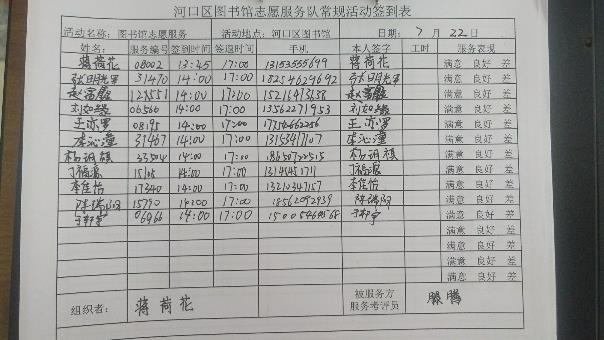 河口区图书馆志愿服务队常规活动签到表
活动名称: 图书馆志愿服务 活动地点: 河口区图书馆 日期: 7月22日
姓名: 服务编号 签到时间 签退时间 手机 本人签字 工时 服务表现
蒋荷花 08002 13:45 17:00 13153555699 蒋荷花 满意 良好 差
张明光军 31470 14:00 17:00 18254629692 满意 良好 差
赵富殿 14:00 17:00 15216413638 满意 良好 差
刘如缘 06566 14:00 17:00 13562271953 刘如缘 满意 良好 差
王亦罗 08195 14:00 17:00 王亦罗 满意 良好 差
李沁潼 31467 14:00 17:00 李沁潼 满意 良好 差
杨玥祺 33504 14:00 17:00 杨玥祺 满意 良好 差
14:00 17:00 满意 良好 差
李佳怡 17340 14:00 17:00 13210347157 李佳怡 满意 良好 差
陈瑞阳 15790 14:00 17:00 18562092939 陈瑞阳 满意 良好 差
06966 14:00 17:00 15005460568 满意 良好 差
满意 良好 差
满意 良好 差
满意 良好 差
满意 良好 差
组织者: 蒋荷花 被服务方
服务考评员 滕腾